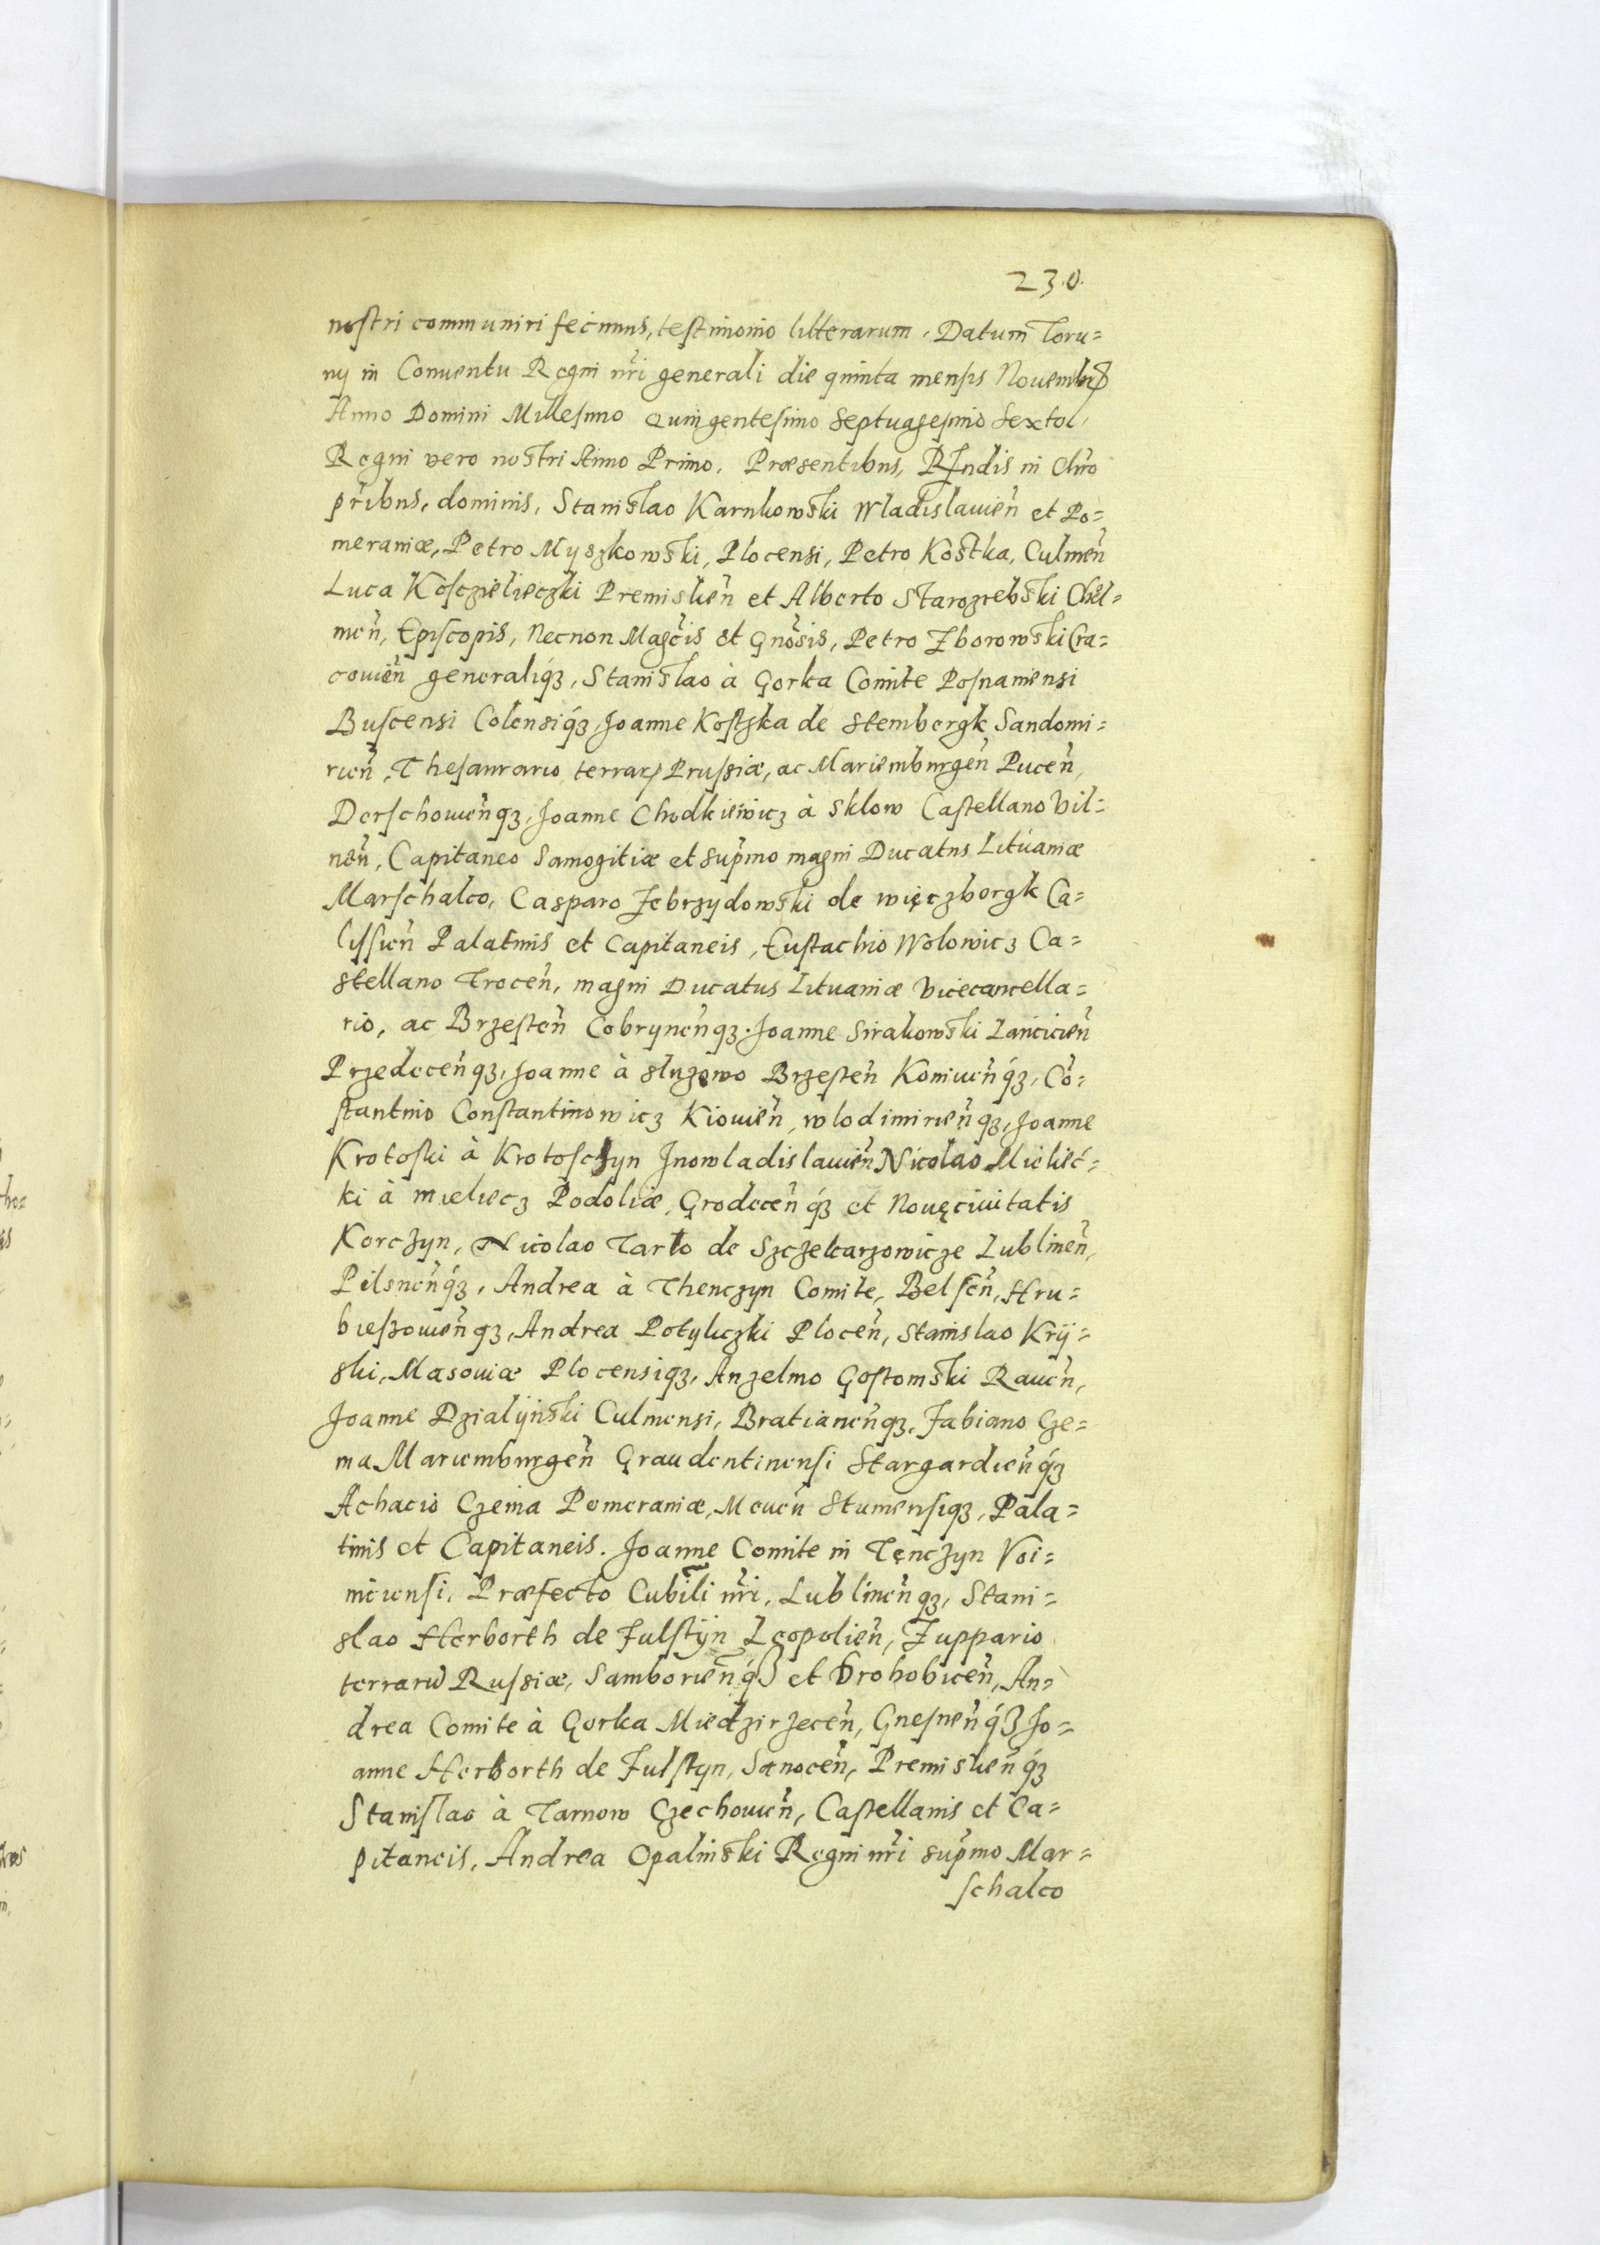 230.
nostri communiri fecimus, testimonio litterarum. Datum Toru=
nij in Conuentu Regni nr̃i generali die quinta mensis Nouembris
Anno Domini Millesimo Quingentesimo Septuagesimo Sexto
Regni vero nostri Anno Primo. Præsentibus, Rndis in Chro
pribus, dominis, Stanislao Karnkowski Wladislauień et Po=
meraniæ, Petro Myszkowski, Plocensi, Petro Kostka, Culmeñ
Luca Kosczieleczki Premislień et Alberto Starozrebski Chel=
meñ, Episcopis, Necnon Magcis et Gnosis, Petro Zborowski Cra=
couień generaliq3, Stanislao à Gorka Comite Posnaniensi
Buscensi Colensiq3, Joanne Kostzka de Stembergk Sandomi=
rień, Thesaurario terrar Prussiæ, ac Mariemburgeñ Puceñ,
Derschouieñq3, Joanne Chodkiewicz à Sklow Castellano Vil=
neñ, Capitaneo Samogitiæ et supmo magni Ducatus Lituaniæ
Marschalco, Casparo Zebrzydowski de więczborgk Ca=
lissień Palatinis et Capitaneis, Eustachio Wolowicz Ca=
stellano Troceñ, magni Ducatus Lituaniæ Vicecancella=
rio, ac Brzesteñ Cobryneñq3. Joanne Sirakowski Lancicień
Przedeceñq3, Joanne à Sluzewo Brzesteñ Koniueñq3, Co=
stantino Constantinowicz Kiouień, wlodimirieñq3, Joanne
Krotoski à Krotoschyn Jnowladislauień Nicolao Mielieć=
ki à mieliecz Podoliæ, Grodeceñ q3 et Nouęciuitatis
Korczyn, Nicolao Tarlo de Szczekarzowicze Lublineñ,
Pilsneñq3, Andrea à Thenczyn Comite, Belseñ, Hru=
bieszouieñq3, Andrea Potyliczki Ploceñ, Stanislao Krij=
ski, Masouiæ Plocensiq3, Anzelmo Gostomski Raueñ,
Joanne Dzialÿnski Culmensi, Bratianeñq3, Fabiano Cze=
ma Mariemburgeñ Graudentinensi Stargardieñq3
Achacio Czema Pomeraniæ, Meueñ Stumensiq3, Pala=
tinis et Capitaneis. Joanne Comite in Tęnczyn Voi=
niciensi, Præfecto Cubili nr̃i, Lublineñq3, Stani=
slao Herborth de Fulstÿn Leopolień, Zuppario
terrarū Russiæ, Samborieñq3 et Drohobiceñ, An=
drea Comite à Gorka Miedzirzeceñ, Gnesneñq3 Jo=
anne Herborth de Fulstyn, Sanoceñ, Premislieñq3
Stanislao à Tarnow Czechouień, Castellanis et Ca=
pitaneis, Andrea Opalinski Regni nr̃i supmo Mar=
schalco